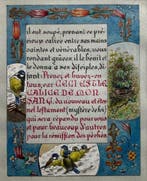 il eut soupé, prenant ce pré
cieux calice entre ses mains
saintes et vénérables, vous
rendant grâces il le bénit et
le donna à ses disciples, di
sant: Prenez et buvez-en
tous, car CECI EST LE
CALICE DE MON
SANG, du nouveau et éter
nel testament (mystère de foi)
qui sera répandu pour vous
et pour beaucoup d'autres
pour la rémission des péchés